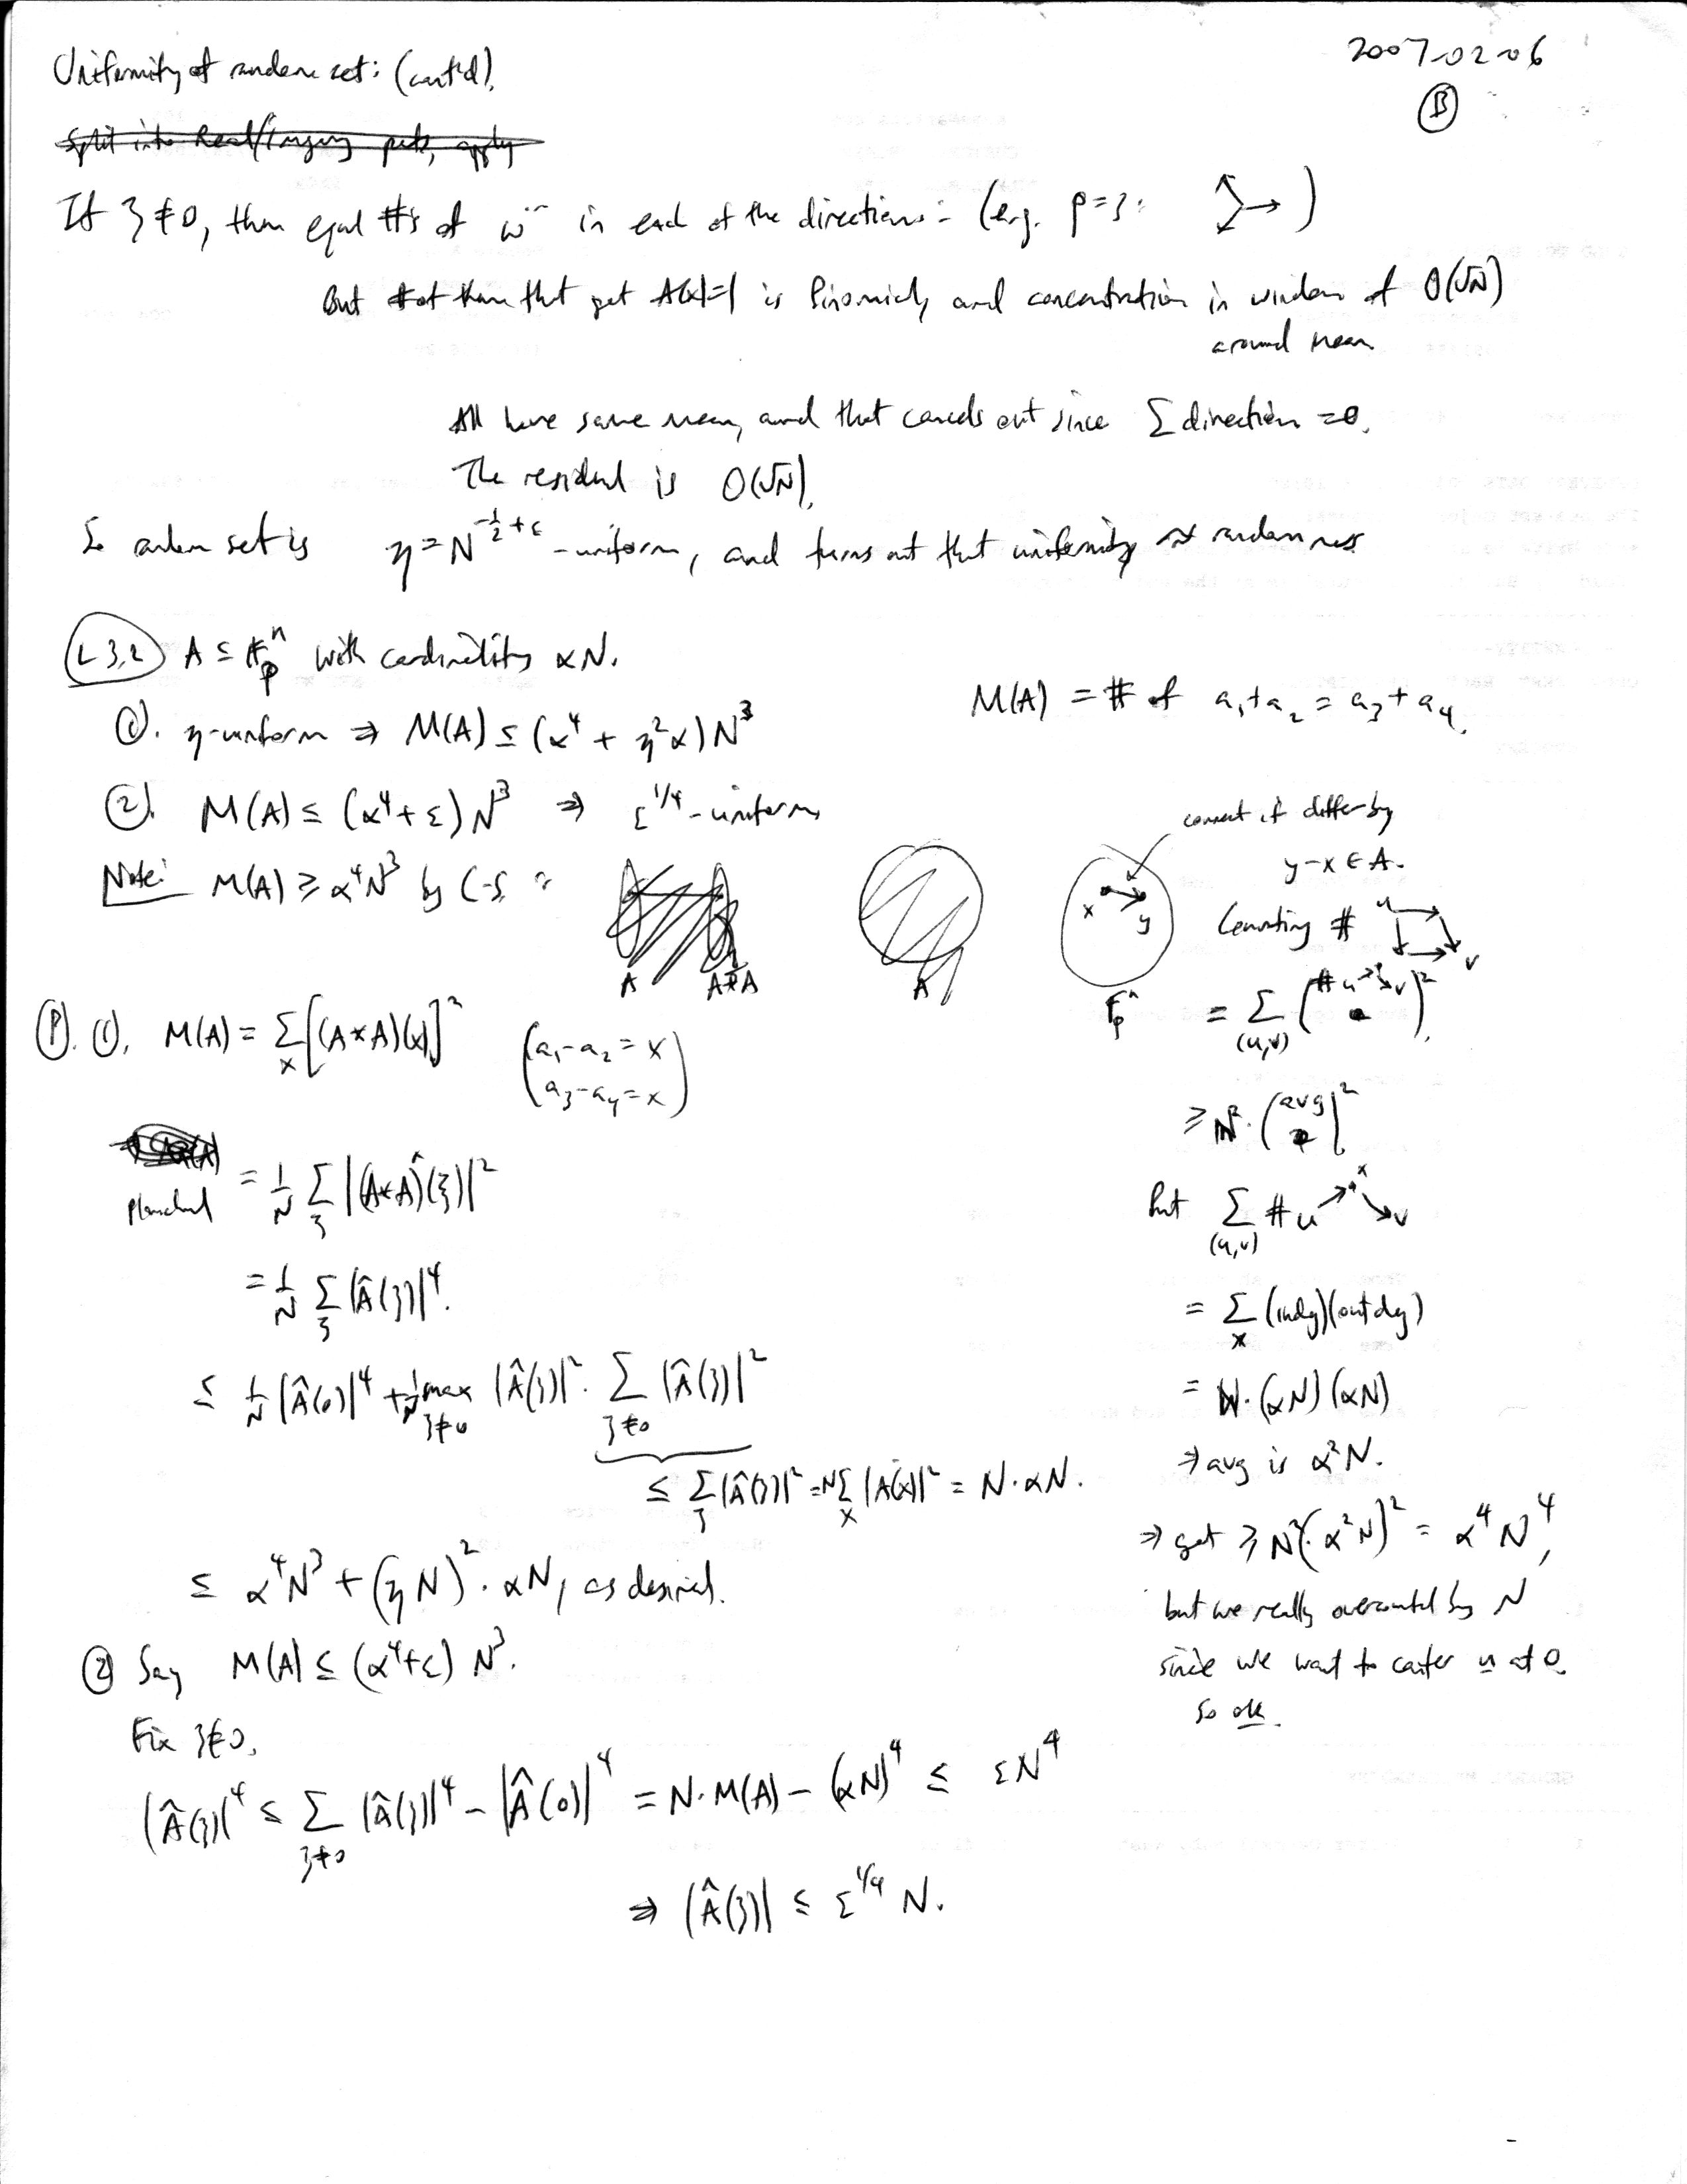 Uniformity of random set: (cont'd).
2007-02-06
B
Split into Real/Imaginary parts, apply
If ξ≠0, then equal #'s of ω^… in each of the directions: (e.g. p=3: )
But # of them that get A(x)=1 is Binomial, and concentration in window of O(√N)
around mean.
All have same mean, and that cancels out since Σ direction = 0.
The residual is O(√N).
So random set is η = N^{-1/2+ε}-uniform, and turns out that uniformity ≈ randomness
L 3.2 A ⊆ F_p^n with cardinality αN.
M(A) = # of a₁+a₂ = a₃+a₄.
①. η-uniform ⇒ M(A) ≤ (α⁴ + η²α)N³
②. M(A) ≤ (α⁴+ε)N³ ⇒ ε^{1/4}-uniform
Note: M(A) ≥ α⁴N³ by C-S:
A
A+A
A
connect if differ by
y-x ∈ A.
x
y
F_p^n
Counting # u v
= Σ_{(u,v)} (# u→·→v)²
≥ N²·(avg)²
But Σ_{(u,v)} # u→x→v
= Σ_x (indeg)(outdeg)
= N·(αN)(αN)
⇒ avg is α²N.
⇒ get ≥ N²(α²N)² = α⁴N⁴,
but we really overcounted by N
since we want to center u at 0.
So ok.
P. ①. M(A) = Σ_x [(A*A)(x)]² (a₁-a₂=x
a₃-a₄=x)
Plancherel = 1/N Σ_ξ |(A*A)^(ξ)|²
= 1/N Σ_ξ |Â(ξ)|⁴.
≤ 1/N |Â(0)|⁴ + 1/N max_{ξ≠0} |Â(ξ)|² · Σ_{ξ≠0} |Â(ξ)|²
≤ Σ_ξ |Â(ξ)|² = N Σ_x |A(x)|² = N·αN.
≤ α⁴N³ + (ηN)²·αN, as desired.
② Say M(A) ≤ (α⁴+ε) N³.
Fix ξ≠0.
|Â(ξ)|⁴ ≤ Σ_{ξ≠0} |Â(ξ)|⁴ - |Â(0)|⁴ = N·M(A) - (αN)⁴ ≤ εN⁴
⇒ |Â(ξ)| ≤ ε^{1/4} N.